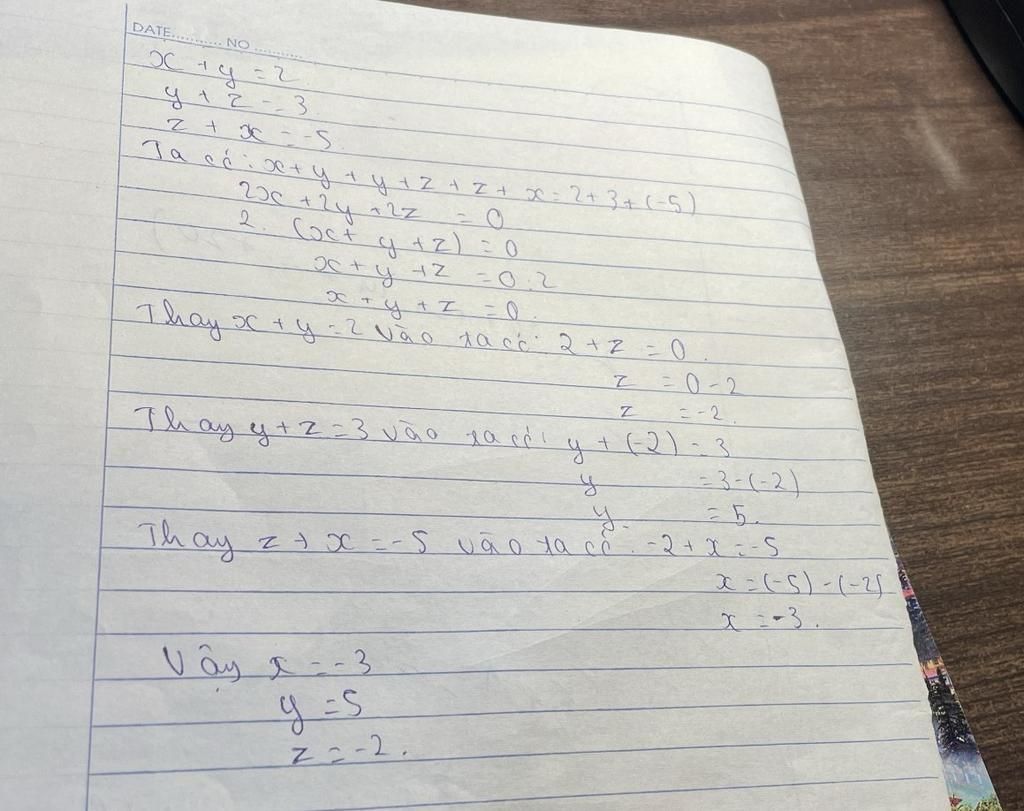 DATE........... NO ............
x + y = 2
y + z = 3
z + x = -5.
Ta có: x + y + y + z + z + x = 2 + 3 + (-5)
2x + 2y + 2z = 0
2. (x + y + z) = 0
x + y + z = 0:2
x + y + z = 0.
Thay x + y = 2 vào ta có: 2 + z = 0.
z = 0 - 2
z = -2.
Thay y + z = 3 vào ta có: y + (-2) = 3
y = 3 - (-2)
y = 5.
Thay z + x = -5 vào ta có: -2 + x = -5
x = (-5) - (-2)
x = -3.
Vậy x = -3
y = 5
z = -2.